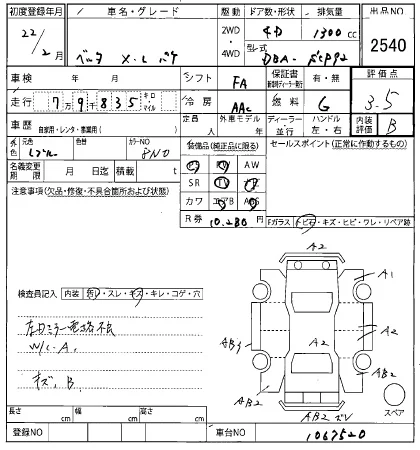 初度登録年月 車名・グレード 駆動 ドア数・形状 排気量 出品NO
22/2月 X-L 2WD・4WD 4D 1300cc 2540
型式 DBA-
車検 年 月 シフト FA 保証書 有・無 評価点
走行 7万9千835 キロ・マイル 冷房 AAC 燃料 G 3.5
車歴 自家用・レンタ・事業用( ) 定員 人 外車モデル 年 ディーラー 並行 ハンドル 左・右 内装評価 B
外色 元色 色替 カラーNO 8N0 装備品(純正品に限る) セールスポイント(正常に作動するもの)
PS PW AW
名義変更期限 月 日迄 積載 t SR TV
注意事項(欠品・修復・不具合箇所および状態) カワ エアB ABS
R券 10,280円 Fガラス トビ石・キズ・ヒビ・ワレ・リペア跡
A2
A1
検査員記入 内装 スレ・キズ・キレ・コゲ・穴
左ドミラー電格不良
W/C.A.
キズ.B.
A2
A2
AB2
AB2
スペア
長さ cm 幅 cm 高さ cm
登録NO 車台NO 1067520